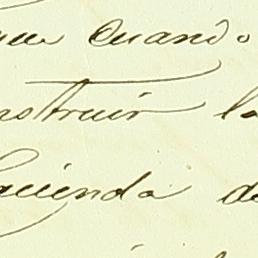 cuando
nstruir la
acienda de